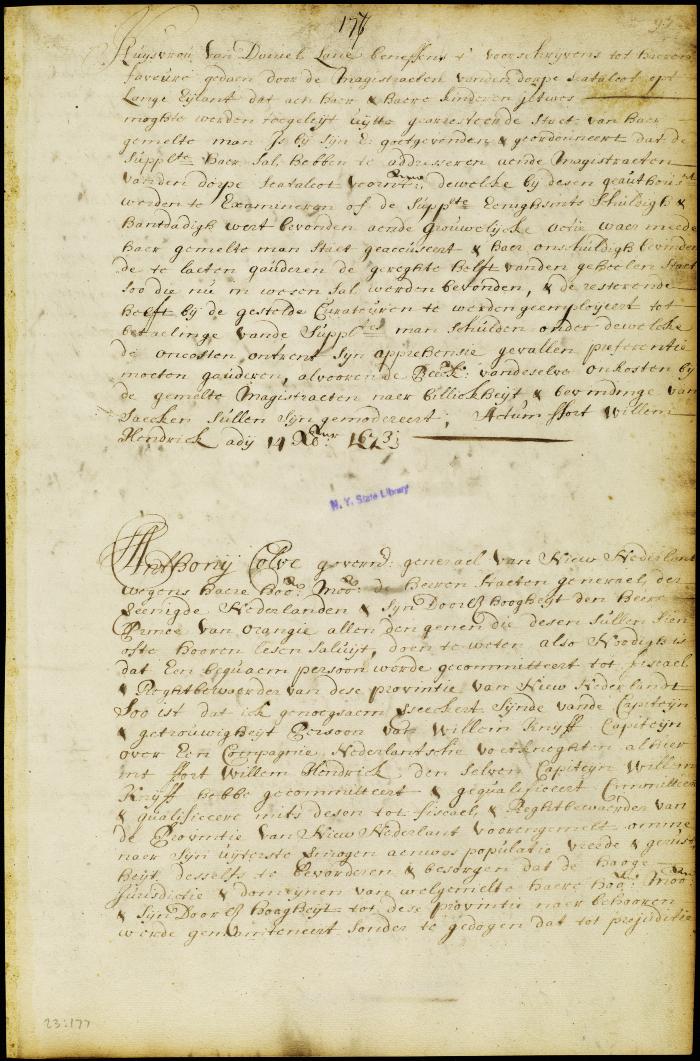 176
Huysvrou van Daniel Lane beneffens 't voorschryvens tot haeren
faveure gedaen door de Magistraeten vanden dorpe Seatalcot opt
Lange Eijlant dat aen haer & haere kinderen ietwes
moghte werden toegeleyt uytte gearresteerde Staet van haer
gemelte man Is by syn E: goetgevonden & geordonneert dat de
Supplte haer sal hebben te addresseren aende Magistraeten
van den dorpe Seatalcot voornt: dewelcke by desen geauthoriseert
werden te Examineren of de Supplte Eenighsints schuldigh &
handdadigh wert bevonden aende grouwelijcke actie waer mede
haer gemelte man staet geaccuseert & haer onschuldigh bevinden
de te laeten gauderen de gereghte helft vanden geheelen Staet
soo die nu in wesen sal werden bevonden, & de resterende
helft by de gestelde Curateuren te werden geemployeert tot
betaelinge vande Supplte man schulden onder dewelcke
de oncosten ontrent syn apprehensie gevallen preferentie
moeten gauderen, alvooren de vandeselve onkosten by
de gemelte Magistraeten naer billickheyt & bevindinge van
Saecken sullen syn gemodereert; Actum ffort Willem
Hendrick ady 14 Xbr 1673;
N. Y. State Library
Anthony Colve govern: generael van Nieuw Nederlant
wegens haere Hoo: Moo: de Heeren Staeten generael, der
Vereenigde Nederlanden & Syn Doorl: Hoogheyt den Heere
Prince van Orangie allen den genen die desen sullen sien
ofte hooren lesen Saluyt, doen te weten also Noodigh is
dat Een bequaem persoon worde gecommitteert tot fiscael
& Reghtbewaerder van dese provintie van Nieuw Nederlandt
Soo ist dat ick genoegsaem Verseeckert synde vande Capiteyn
& getrouwigheyt Persoon van Willem Knyff Capiteyn
over Een Compagnie Nederlantsche voetknegten alhier
int ffort Willem Hendrick, den selven Capiteyn Willem
Knyff hebbe gecommitteert & gequalificeert Committeere
& qualificere mits desen tot fiscael & Reghtbewaerder van
de Provintie van Nieuw Nederlant voorengemelt omme
naer syn uyterste vermogen aenwas populatie vrede & gerust
heyt desselfs te bevorderen & besorgen dat de hooge
Jurisdictie & domeynen van welgemelte haere Hoo: Moo:
& Syn Doorl: Hoogheyt tot dese provintie naer behooren
werde gemainteneert sonder te gedogen dat tot prejuditie
23:177